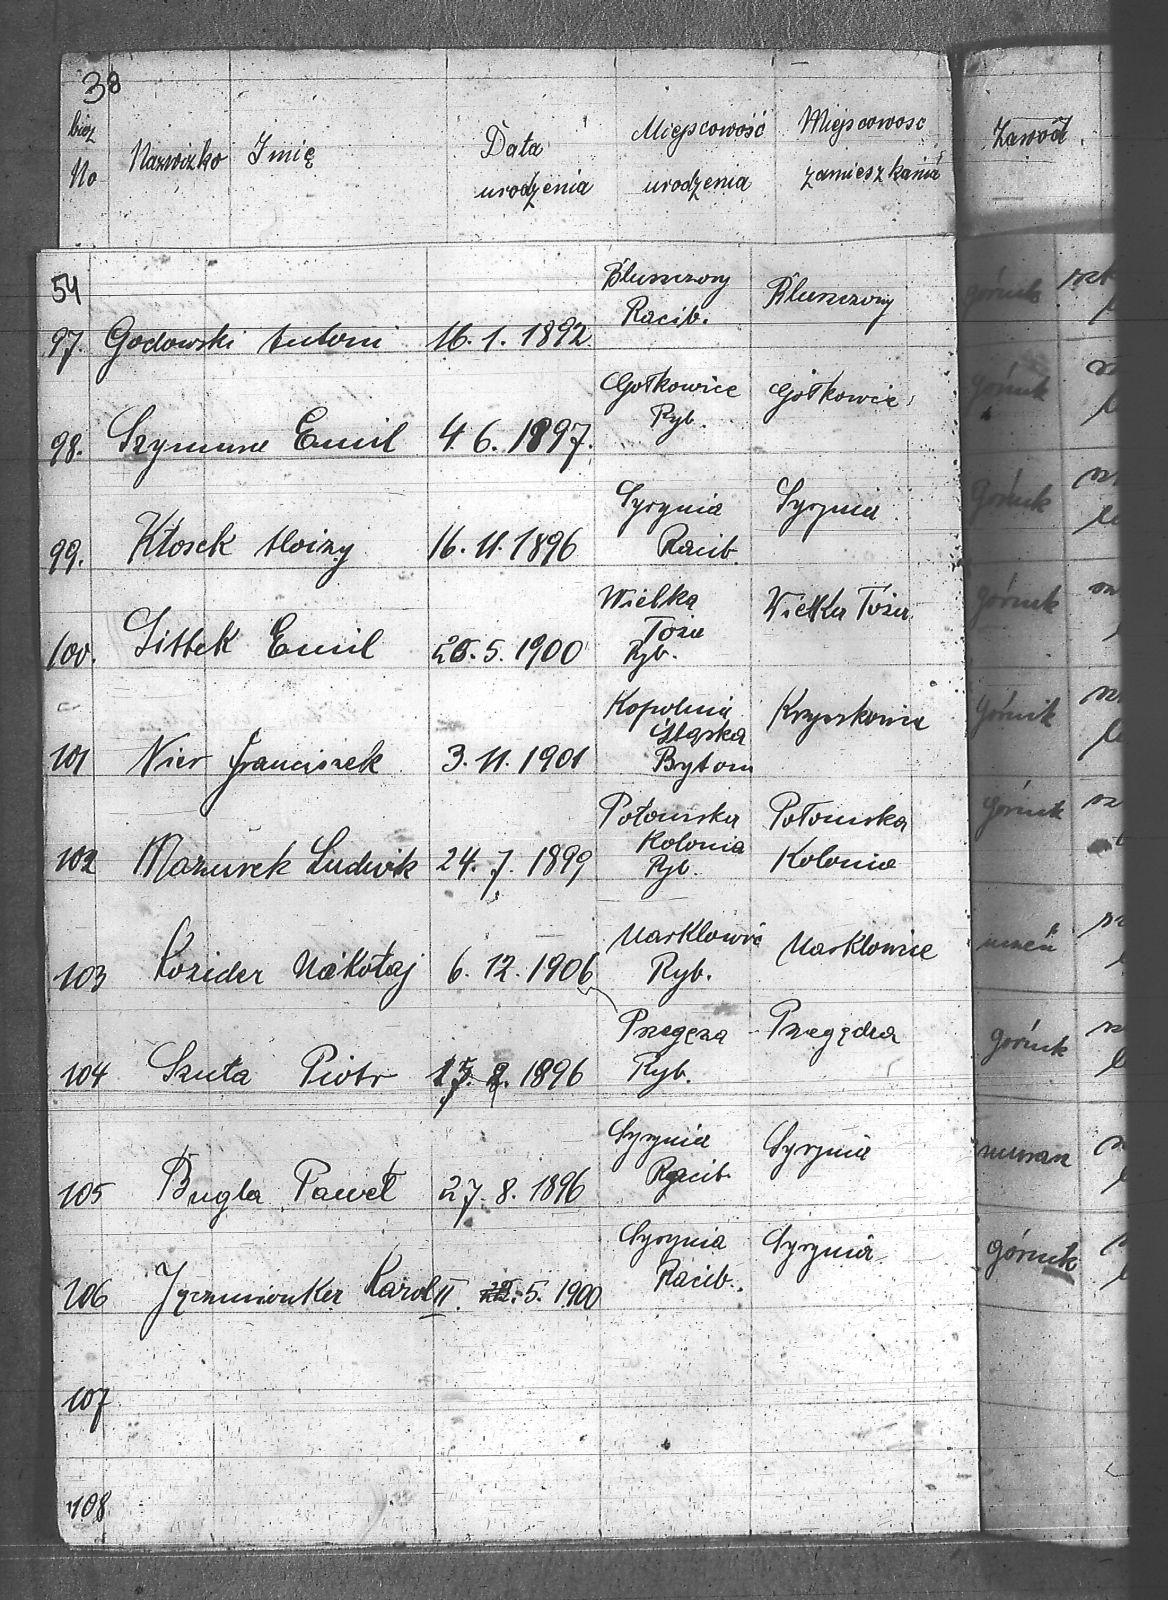 38
bież No Nazwizko Imię Data urodzenia Miejscowość urodzenia Miejscowość zamieszkania Zawód
54
97. Godowski Antoni 16. 1. 1892 Bluszczowy Racib. Bluszczowy górnik
98. Szymura Emil 4. 6. 1897. Gołkowice Ryb. Gołkowice górnik
99. Kłosek Aloizy 16. 11. 1896 Syrynia Racib. Syrynia Górnik
100. Sittek Emil 5. 1900 Wielka Toża Ryb. Wielka Toża górnik
101 Nier Franciszek 3. 11. 1901 Kopalnia Śląska Bytom Krzyszkowice górnik
102 Mazurek Ludwik 24. 7. 1899 Połomska Kolonia Ryb. Połomska Kolonia górnik
103 Kozider Mikołaj 6. 12. 1906 Marklowic Ryb. Marklowice uczeń
104 Szuta Piotr 1896 Przegęza Ryb. Przegędza górnik
105 Bugla Paweł 27. 8. 1896 Syrynia Racib. Syrynia murarz
106 Karol II. 5. 1900 Syrynia Racib. Syrynia górnik
107
108